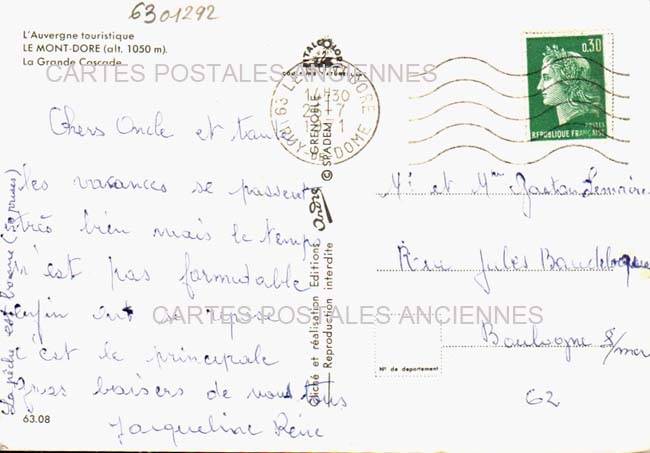 6301292
L'Auvergne touristique
LE MONT-DORE (alt. 1050 m).
La Grande Cascade
CARTES POSTALES ANCIENNES
Chers Oncle et tante
les vacances se passent
très bien mais le temps
n'est pas formidable
enfin on se repose
c'est le principale
gros baisers de nous tous
Jacqueline René
La pêche est bonne (50 prises)
63.08
63 LE MONT-DORE
14H30
PUY-DE-DOME
GRENOBLE
© SPADEM
Cliché et réalisation Editions
Reproduction interdite
0,30
POSTES
REPUBLIQUE FRANÇAISE
Mr et Mme Gaetan
Rue Jules Baudelocque
CARTES POSTALES ANCIENNES
Boulogne s/mer
N° de département
62